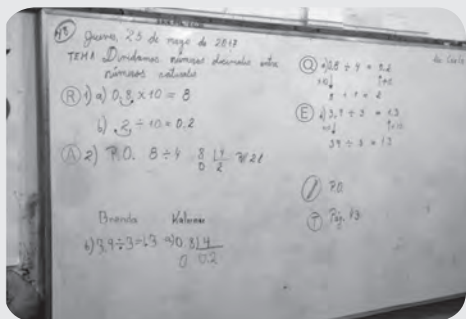 Jueves, 25 de mayo de 2017
TEMA: Dividamos números decimales entre
números naturales
R 1) a) 0.8 x 10 = 8
b) 2 ÷ 10 = 0.2
A 2) P.O. 8 ÷ 4 8 4
0 2
Brenda
b) 3.9 ÷ 3 = 1.3 a) 0.8 4
0 0.2
Q a) 0.8 ÷ 4 = 0.2
8 ÷ 4 = 2
E b) 3.9 ÷ 3 = 1.3
39 ÷ 3 = 13
P.O.
T Pág. 13